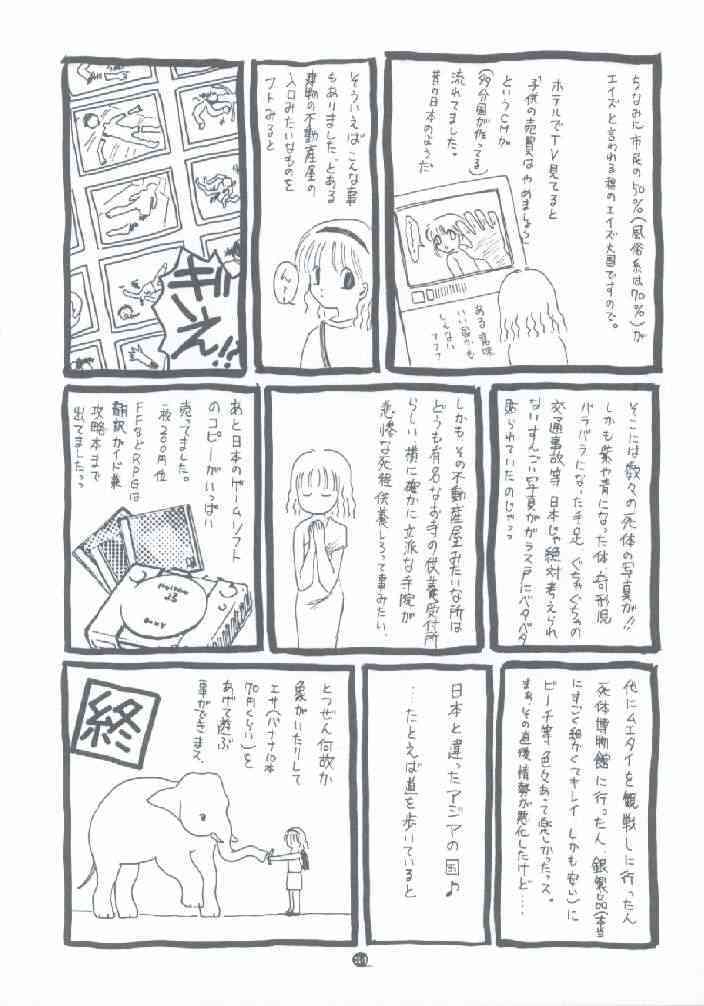 ちなみに市民の50%(風俗系は70%)が
エイズと言われる程のエイズ大国ですので。
ホテルでTV見てると
「子供の売買はやめましょう」
というCMが
(多分国が作ってる)
流れてました。
昔の日本のようだ
ある意味
いい国かも
しんない
そういえばこんな事
もありました、とある
建物の不動産屋の
入口みたいなものを
フトみると
ん?
ギえ!!
そこには数々の死体の写真が!!
しかも紫や青になった体、奇形児
バラバラになった手足、ぐちゃぐちゃの
交通事故等、日本じゃ絶対考えられ
ないすんごい写真がガラス戸にバタバタ
貼られていたのじゃっっ
しかもその不動産屋みたいな所は
どうも有名なお寺の供養受付所
らしい、横に確かに立派な寺院が
悲惨な死程供養しろって事みたい。
あと日本のゲームソフト
のコピーがいっぱい
売ってました。
一枚200円位
FFなどRPGは
翻訳ガイド兼
攻略本まで
出てましたっっ
他にムエタイを観戦しに行ったん
死体博物館に行ったん、銀製品(本当
にすごく細かくてキレイ しかも安い)に
ビーチ等、色々あって楽しかったっス。
まぁ、その直後情勢が悪化したけど…
日本と違ったアジアの国♪
…たとえば道を歩いていると
とつぜん何故か
象がいたりして
エサ(バナナ10本
70円くらい)を
あげて遊ぶ
事ができまス、
終